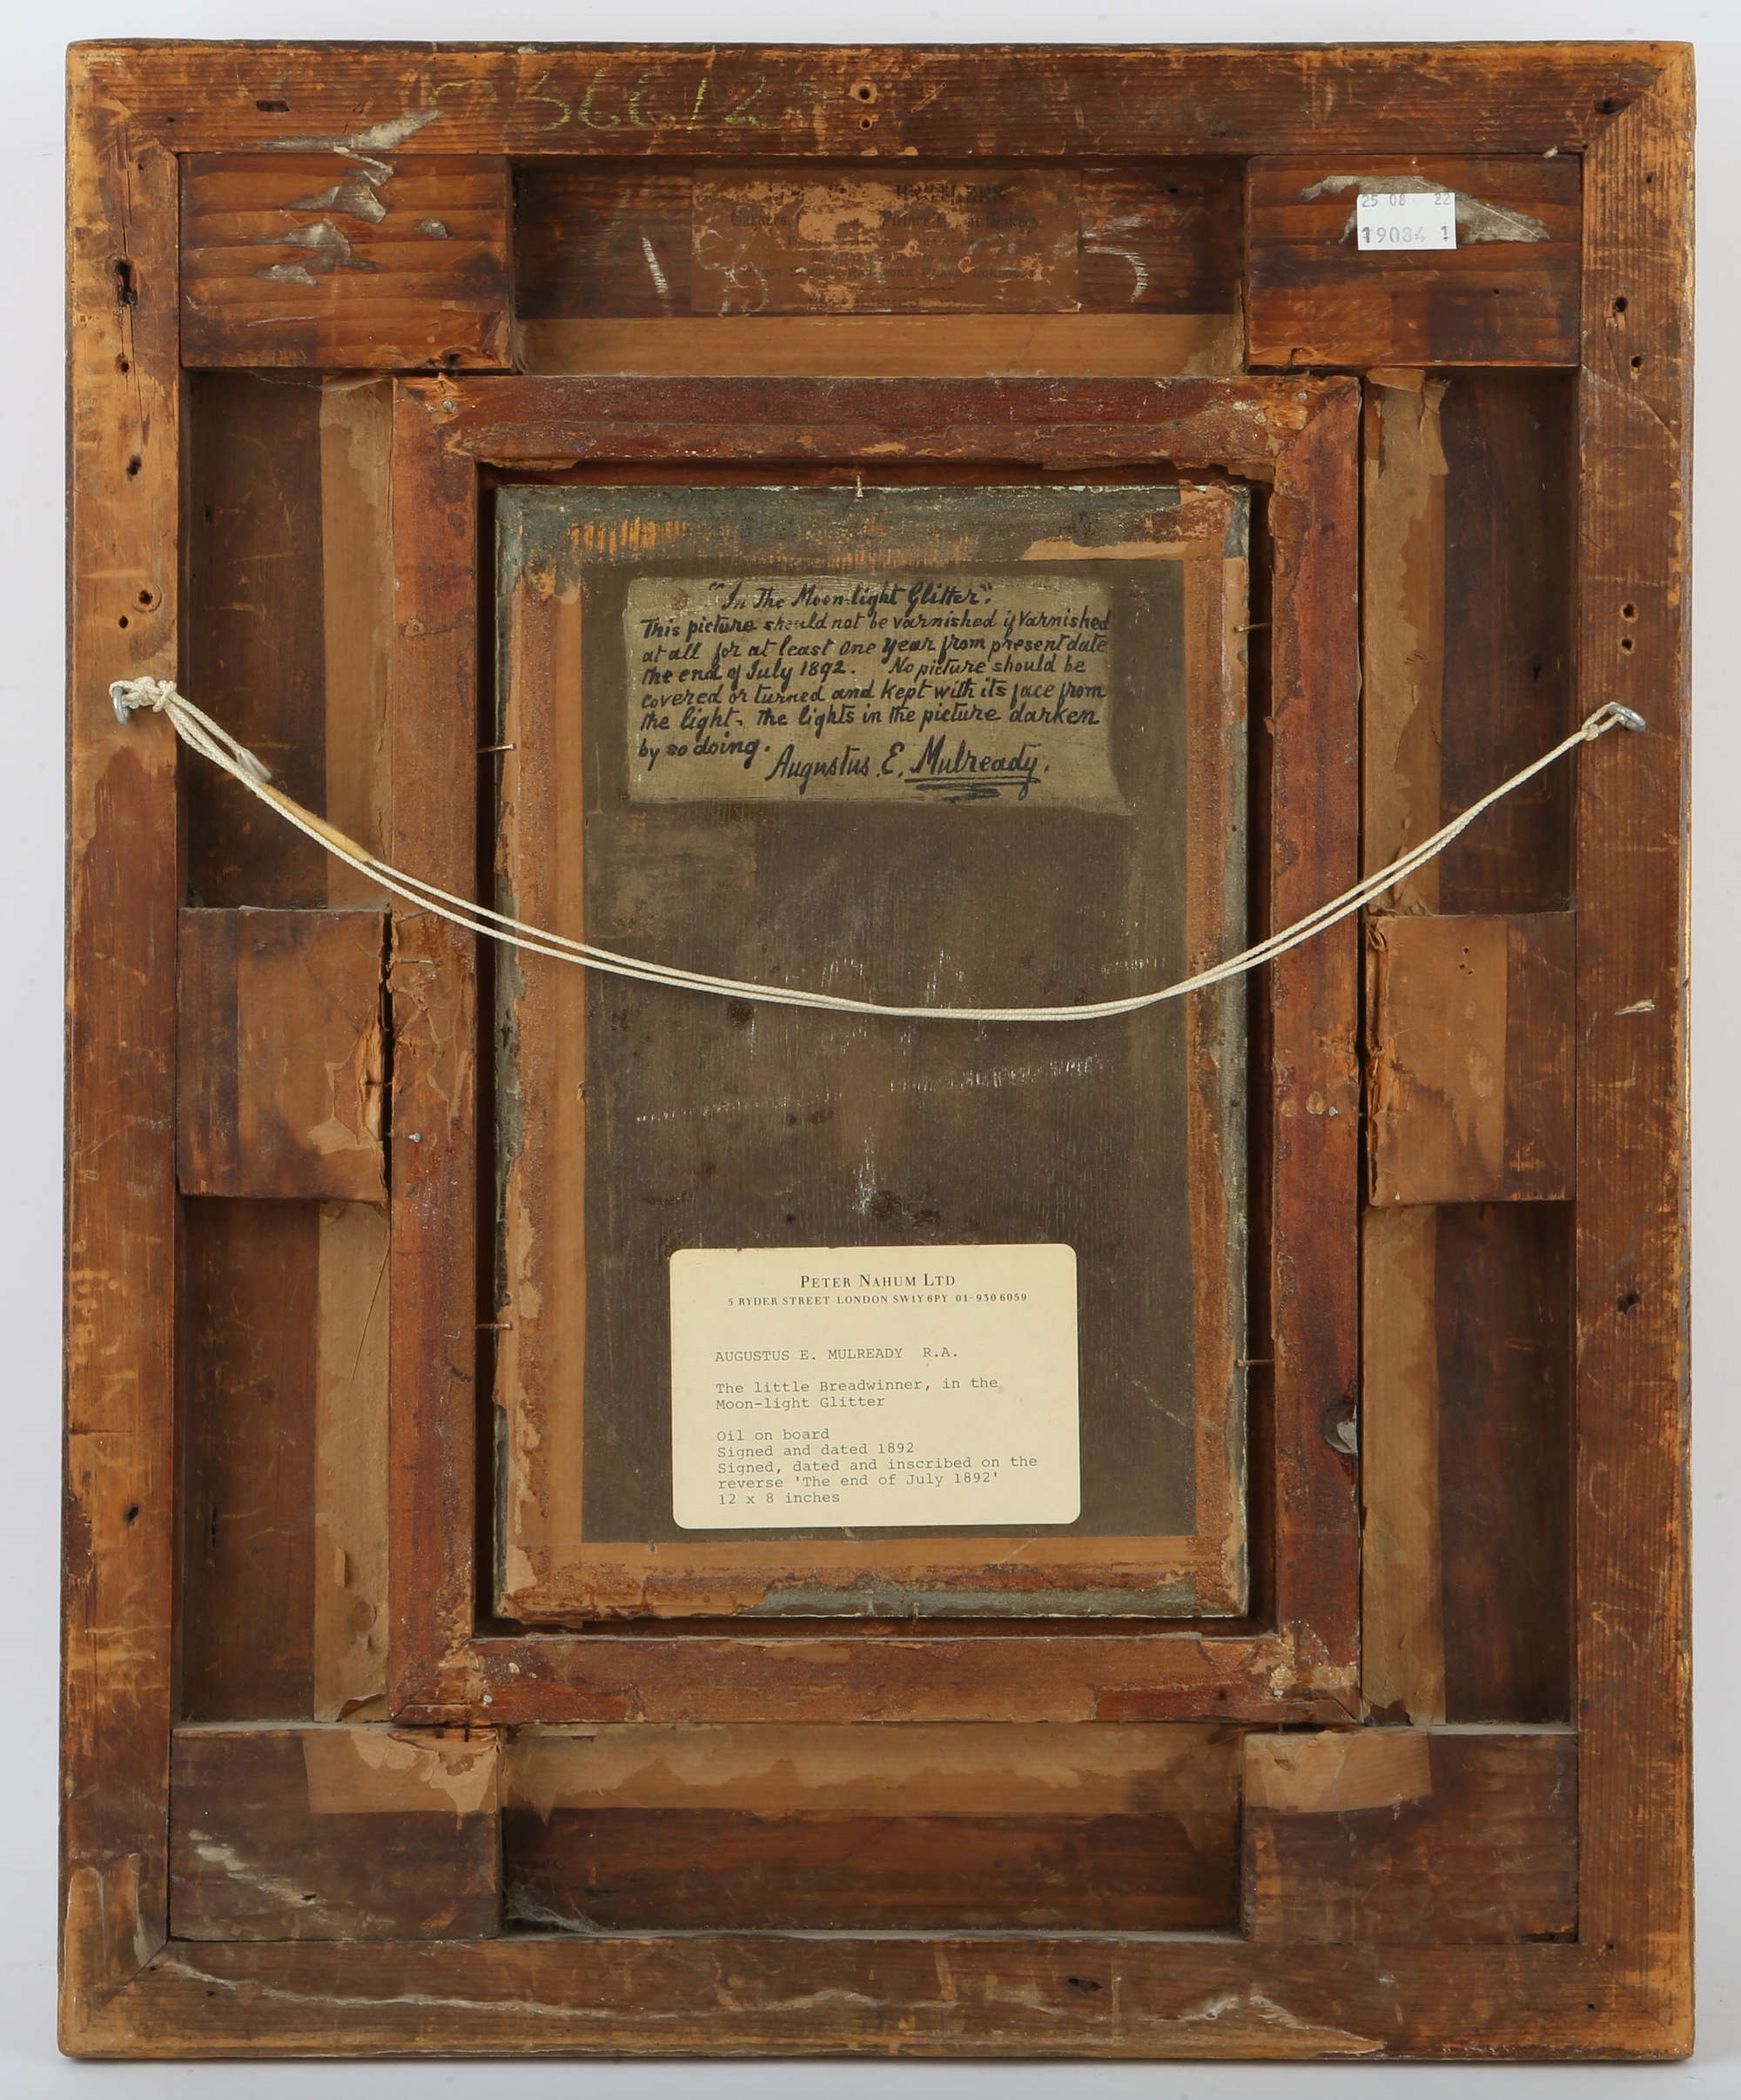 25 08 22
19084 1
"In The Moon-light Glitter".
This picture should not be varnished if varnished
at all for at least one Year from present date
the end of July 1892. No picture should be
covered or turned and kept with its face from
the light. the lights in the picture darken
by so doing. Augustus. E. Mulready.
PETER NAHUM LTD
5 RYDER STREET LONDON SW1Y 6PY 01-930 6059
AUGUSTUS E. MULREADY R.A.
The little Breadwinner, in the
Moon-light Glitter
Oil on board
Signed and dated 1892
Signed, dated and inscribed on the
reverse 'The end of July 1892'
12 x 8 inches